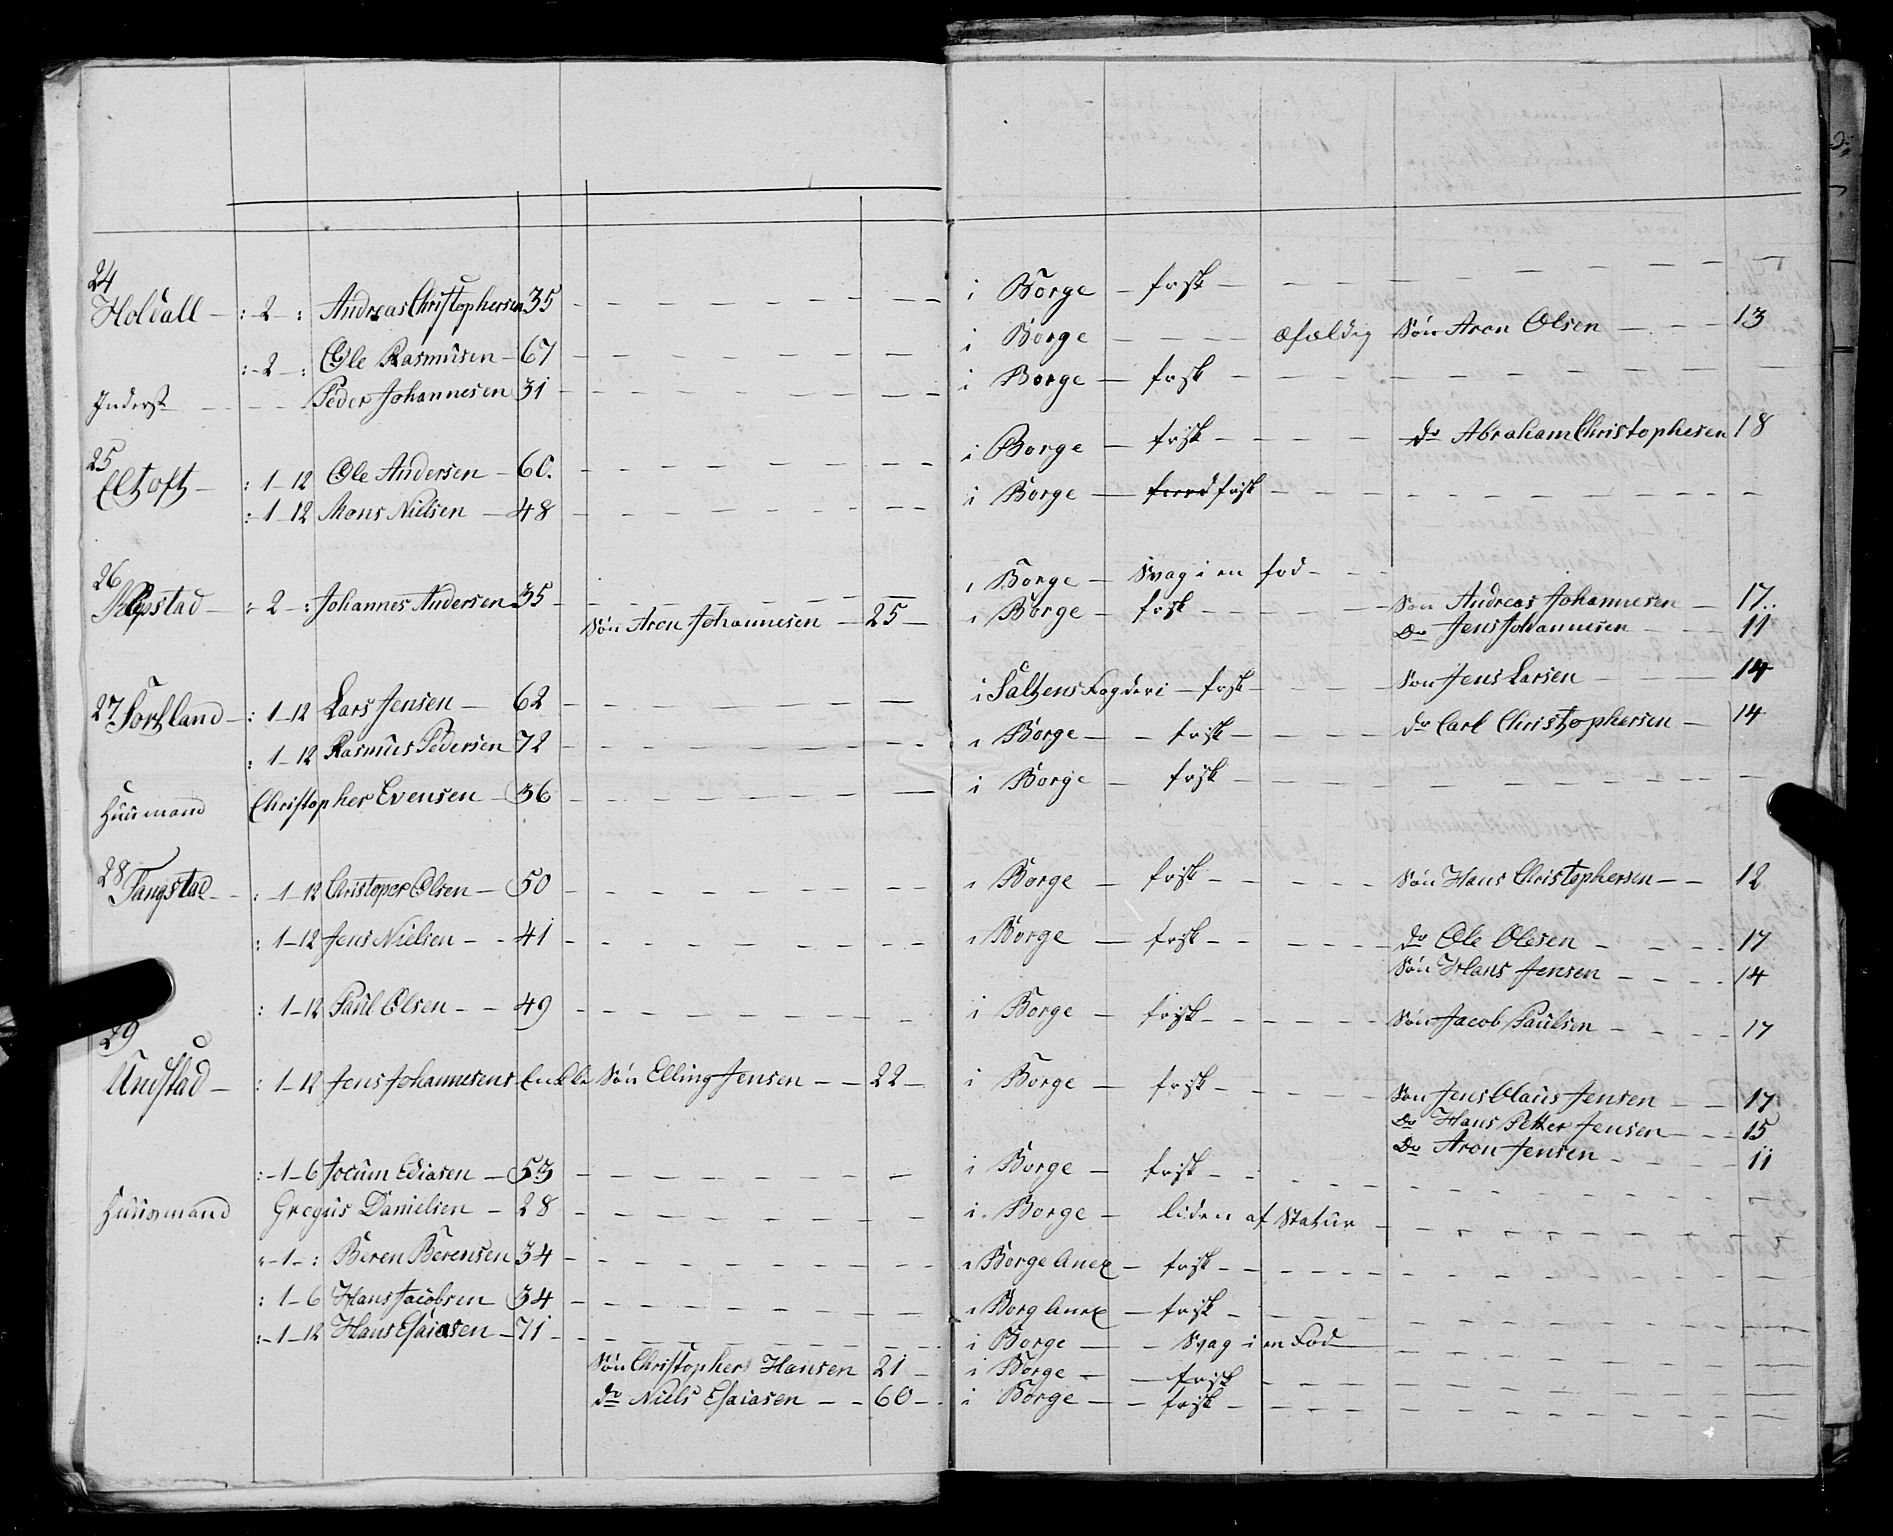 24
Holdall – : 2 – : Andreas Christophersen 35 – i Borge – frisk –
: – 2 – : Ole Rasmusen – 67 – i Borge – – – – æfældig Søn Aron Olsen – – – 13
Inderst – – – Peder Johannesen 31 – i Borge – frisk –
25
Eltoft – : 1 – 12 Ole Andersen – 60. – i Borge – frisk – – – – do Abraham Christophesen 18
: 1 – 12 Mons Nielsen – 48 – i Borge – frisk –
26
: 2 – : Johannes Andersen 35 – i Borge – Svag i en fod –
Søn Aron Johannesen – 25 – i Borge – frisk – – – – Søn Andreas Johannesen – 17..
Do Jens Johannesen – – – 11
27 Tortland – : 1 – 12 Lars Jensen – 62 – i Saltens Fogderi – frisk – – – – Søn Jens Larsen – – – 14
: 1 – 12 Rasmus Pedersen 72 – i Borge – – frisk – – – – do Carl Christophersen – 14
Huusmand Christopher Evensen – 36 – i Borge – frisk –
28
Tangstad – – : 1 – 12 Christoper Olsen – 50 – i Borge – frisk – – – – Søn Hans Christophersen – – 12
: 1 – 12 Jens Nielsen – – 41 – i Borge – frisk – – – – do Ole Olesen – – – 17
Søn Hans Jensen – – – 14
: 1 – 12 Paul Olsen – – 49 – i Borge – frisk – – – – Søn Jacob Paulsen – – – 17
29
Undstad – : 1 – 12 Jens Johannesens Enkke Søn Elling Jensen – – 22 – i Borge – frisk – – – – Søn Jens Claus Jensen – – 17
Do Hans Petter Jensen – – – 15
Do Aron Jensen – – – 11
: – 1 – 6 Jocum Ediasen – 53 – i Borge – frisk –
Huusmand Gregus Danielsen – 28 – i Borge – liden af Statur –
: – 1 – : Beren Berensen 34 – i Borge Anex – frisk –
: 1 – 6 Hans Jacobsen 34 – i Borg Anex – frisk –
: – 1 – 12 Hans Esaiasen – 71 – i Borge – – Svag i en Fod –
Søn Christopher Hansen 21 – i Borge – – frisk –
do Niels Esaiasen – – 60 – i Borge – – frisk –